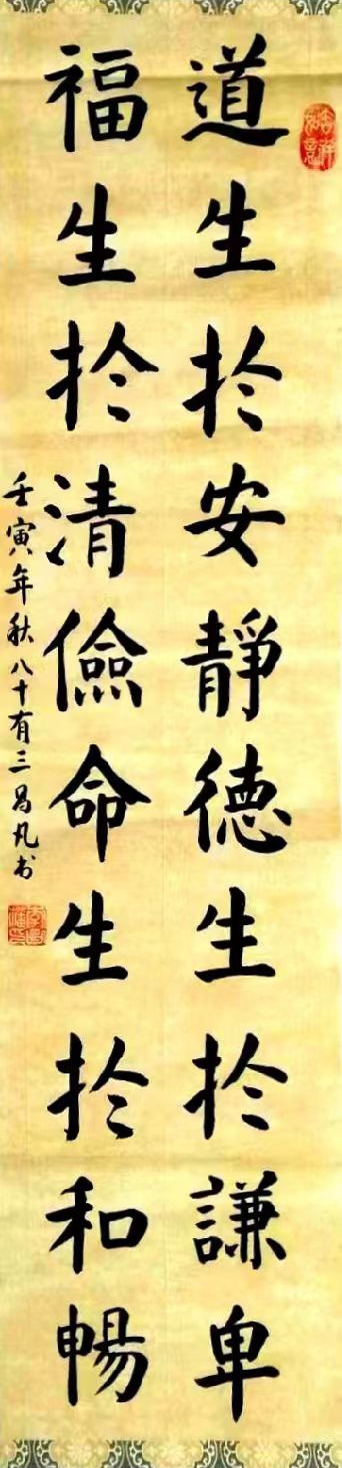 道生於安靜德生於謙卑
福生於清儉命生於和暢
壬寅年秋八十有三昌凡书